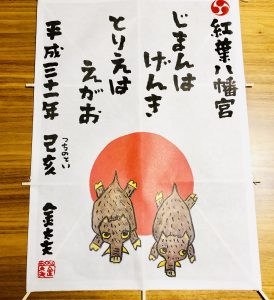 紅葉八幡宮
じまんは
げんき
とりえは
えがお
平成三十一年 己亥
つちのとい